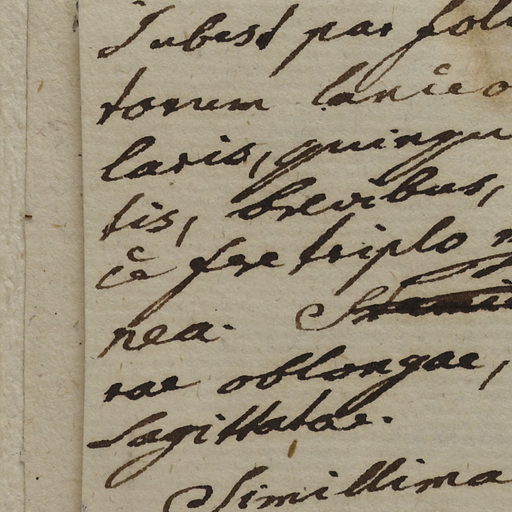 subest par foli
torum lanceo
laris, quinqu
tis, brevibus,
fere triplo
nea. Stami
rae oblongae,
sagittatae.
Simillima